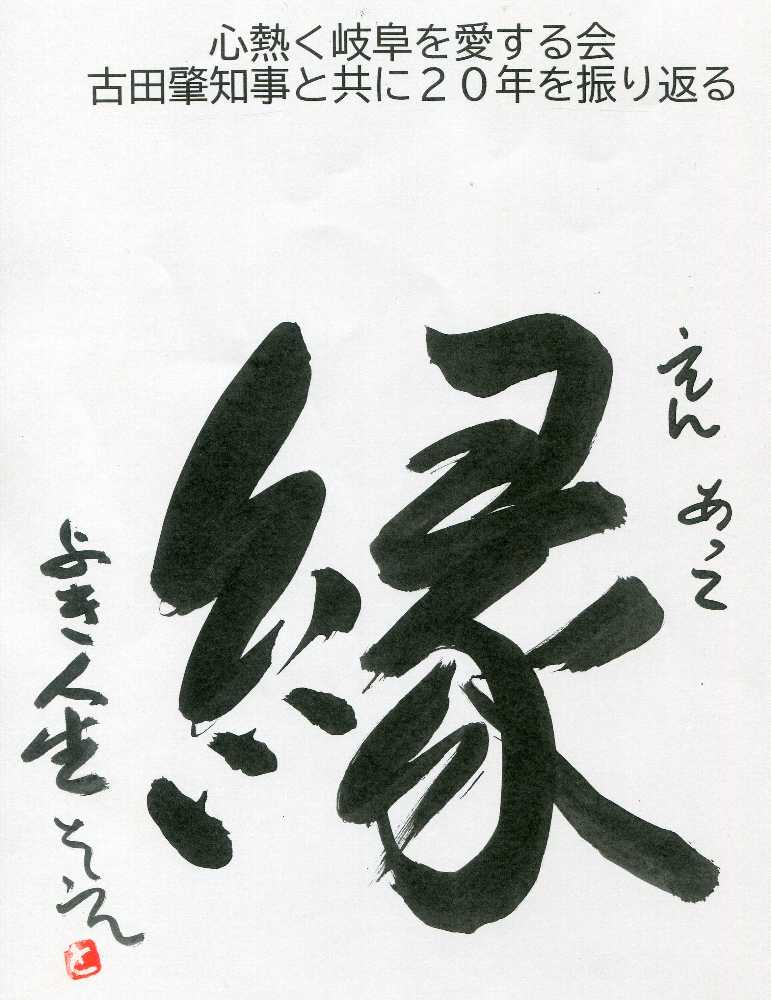 心熱く岐阜を愛する会
古田肇知事と共に２０年を振り返る
えん あって
縁
よき人生
と